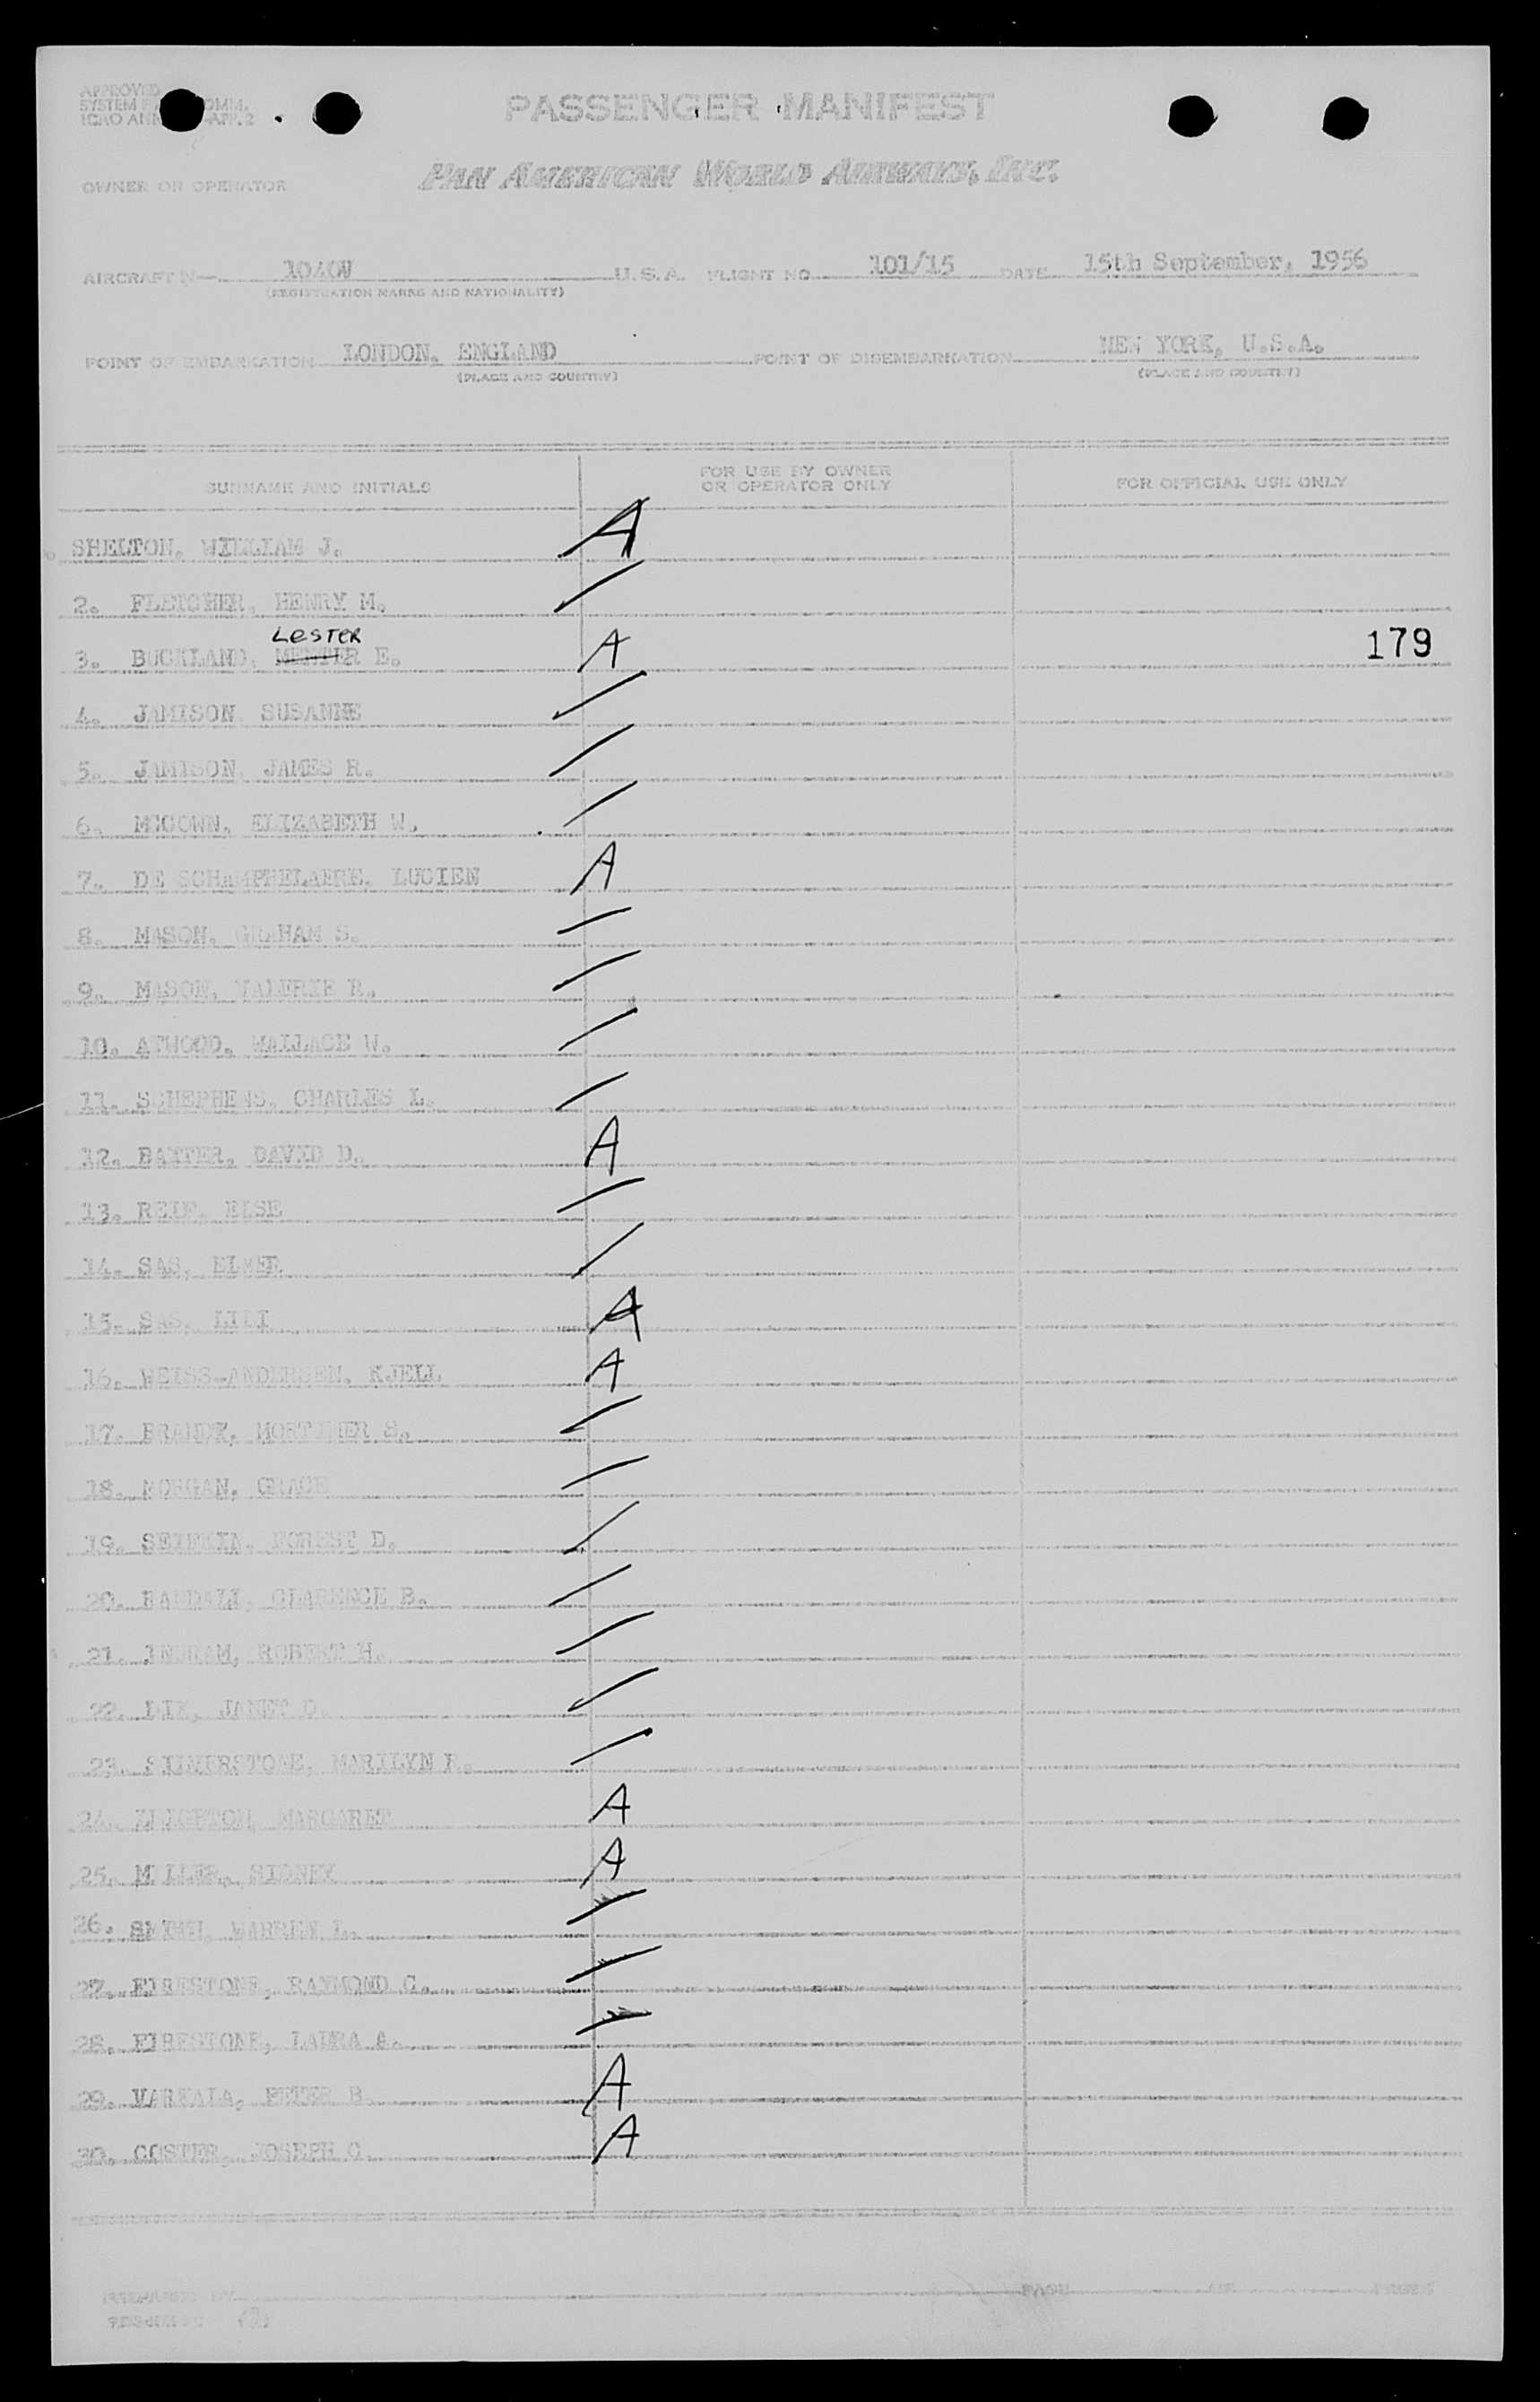 APPROVED
SYSTEM COMM.
ICAO APP. 2
PASSENGER MANIFEST
OWNER OR OPERATOR PAN AMERICAN WORLD AIRWAYS, INC.
AIRCRAFT N 1040V U.S.A. FLIGHT NO. 101/15 DATE 15th September, 1956
(REGISTRATION MARKS AND NATIONALITY)
POINT OF EMBARKATION LONDON, ENGLAND POINT OF DISEMBARKATION NEW YORK, U.S.A.
(PLACE AND COUNTRY) (PLACE AND COUNTRY)
SURNAME AND INITIALS FOR USE BY OWNER OR OPERATOR ONLY FOR OFFICIAL USE ONLY
SHELTON, WILLIAM J. A
2. FLEICHER, HENRY M.
LESTER
3. BUCKLAND, E. A 179
4. JAMISON SUSANNE
5. JAMISON, JAMES R.
6. MCGOWN, ELIZABETH W.
7. DE SCHAMPHELAERE, LUCIEN A
8. MASON, GRAHAM S.
9. MASON, VALERIE R.
10. ATWOOD, WALLACE W.
11. SCHEPHENS, CHARLES L.
12. BAXTER, DAVID D. A
13. REIF, ELSE
14. SAS, ELMER
15. SAS, LILI A
16. WEISS-ANDERSEN, KJELL A
17. BRANDT, MORTIMER S.
18. MORGAN, GRACE
19. FOREST D.
20. RANDALL, CLARENCE B.
21. INGRAM, ROBERT H.
22. JANET
23. SILVERSTONE, MARILYN R.
24. LEIGHTON, MARGARET A
25. MILLER, SIDNEY A
26. SMITH, WARREN L.
27. FIRESTONE, RAYMOND C.
28. FIRESTONE, LAURA A.
29. VARKALA, PETER B. A
30. COSTER, JOSEPH C. A
PREPARED BY PAGE OF PAGES